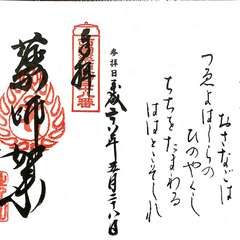 おさなごは
つゑよはしらの
ひのやくし
ちちをたまわる
ははとこそしれ
参拝日 平成二八年五月二八日
奉拝
薬師如来